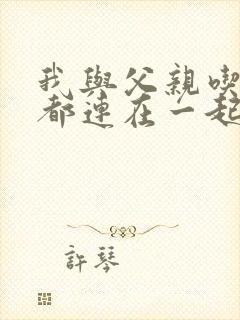 我與父親喫
都連在一起
許琴